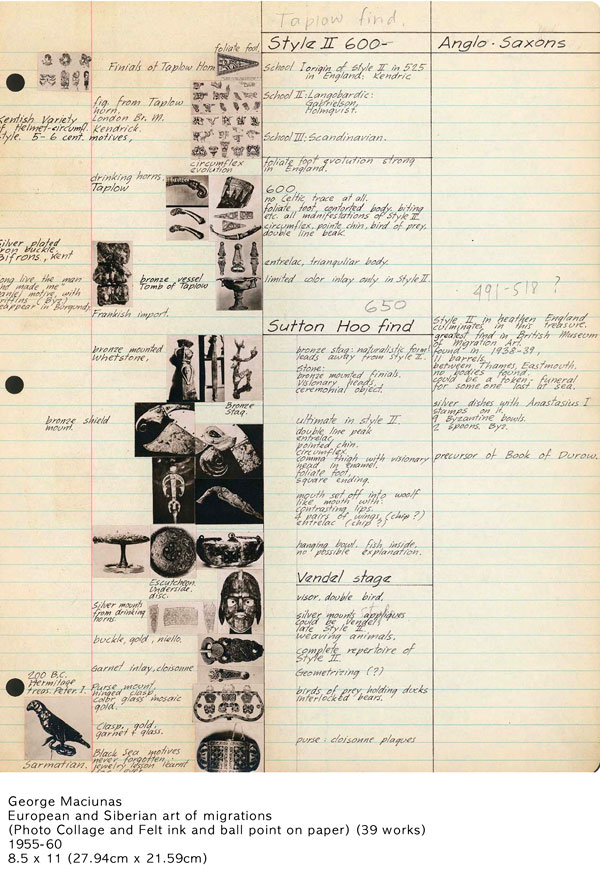 Taplow find.
Style II 600-
Anglo-Saxons
foliate foot
Finials of Taplow Horn
School I origin of style II in 525
in England; Kendric
School II: Langobardic:
Gabrielson,
Holmqvist.
School III: Scandinavian.
fig. from Taplow
horn.
London Br. M.
Kendrick.
motives,
Kentish Variety
of Helmet-circumfl.
style. 5-6 cent.
circumflex
evolution
foliate foot evolution strong
in England.
drinking horns.
Taplow
600
no Celtic trace at all.
foliate foot, contorted body, biting
etc. all manifestations of Style II.
circumflex, pointe chin, bird of prey,
double line beak.
Silver plated
iron buckle,
Bifrons, Kent
entrelac, triangular body.
long live the man
who made me"
Daniel motive, with
griffins (Byz.)
reappear in Burgundy
bronze vessel
Tomb of Taplow
limited color inlay only in Style II
Frankish import.
491-518 ?
650
Sutton Hoo find
Style II in heathen England
culminates in this treasure.
greatest find in British Museum
of Migration Art.
found in 1938-39,
11 barrels
between Thames, Eastmouth.
no bodies found.
could be a token-funeral
for some one lost at sea.
silver dishes with Anastasius I
stamps on it.
9 Byzantine bowls.
2 spoons. Byz.
precursor of Book of Durow.
bronze mounted
Whetstone,
bronze stag: naturalistic form!
leads away from Style II.
stone:
bronze mounted finials.
visionary heads,
ceremonial object.
Bronze
Stag.
bronze shield
mount.
ultimate in style II.
double line peak
entrelac
pointed chin.
circumflex
comma thigh with visionary
head in enamel.
foliate foot,
square ending.
mouth set off into woolf
like mouth with
contrasting lips.
4 pairs of wings, (chip?)
entrelac (chip?)
hanging bowl, fish inside,
no possible explanation.
Escutcheon
Underside,
disc.
Vendel stage
visor, double bird,
Silver mounts
from drinking
horns.
silver mounts appliques
could be Vendel,
late Style II.
weaving animals.
buckle, gold, niello.
complete repertoire of
Style II.
Garnet inlay, cloisonne
Geometrizing (?)
200 B.C.
Hermitage
treas. Peter. I.
Purse mount,
hinged clasp,
color glass mosaic
gold.
birds of prey, holding ducks
interlocked bears.
Clasp, gold,
garnet & glass.
purse: cloisonne plaques
Sarmatian.
Black Sea motives
never forgotten,
jewelry lesson learnt
George Maciunas
European and Siberian art of migrations
(Photo Collage and Felt ink and ball point on paper) (39 works)
1955-60
8.5 x 11 (27.94cm x 21.59cm)